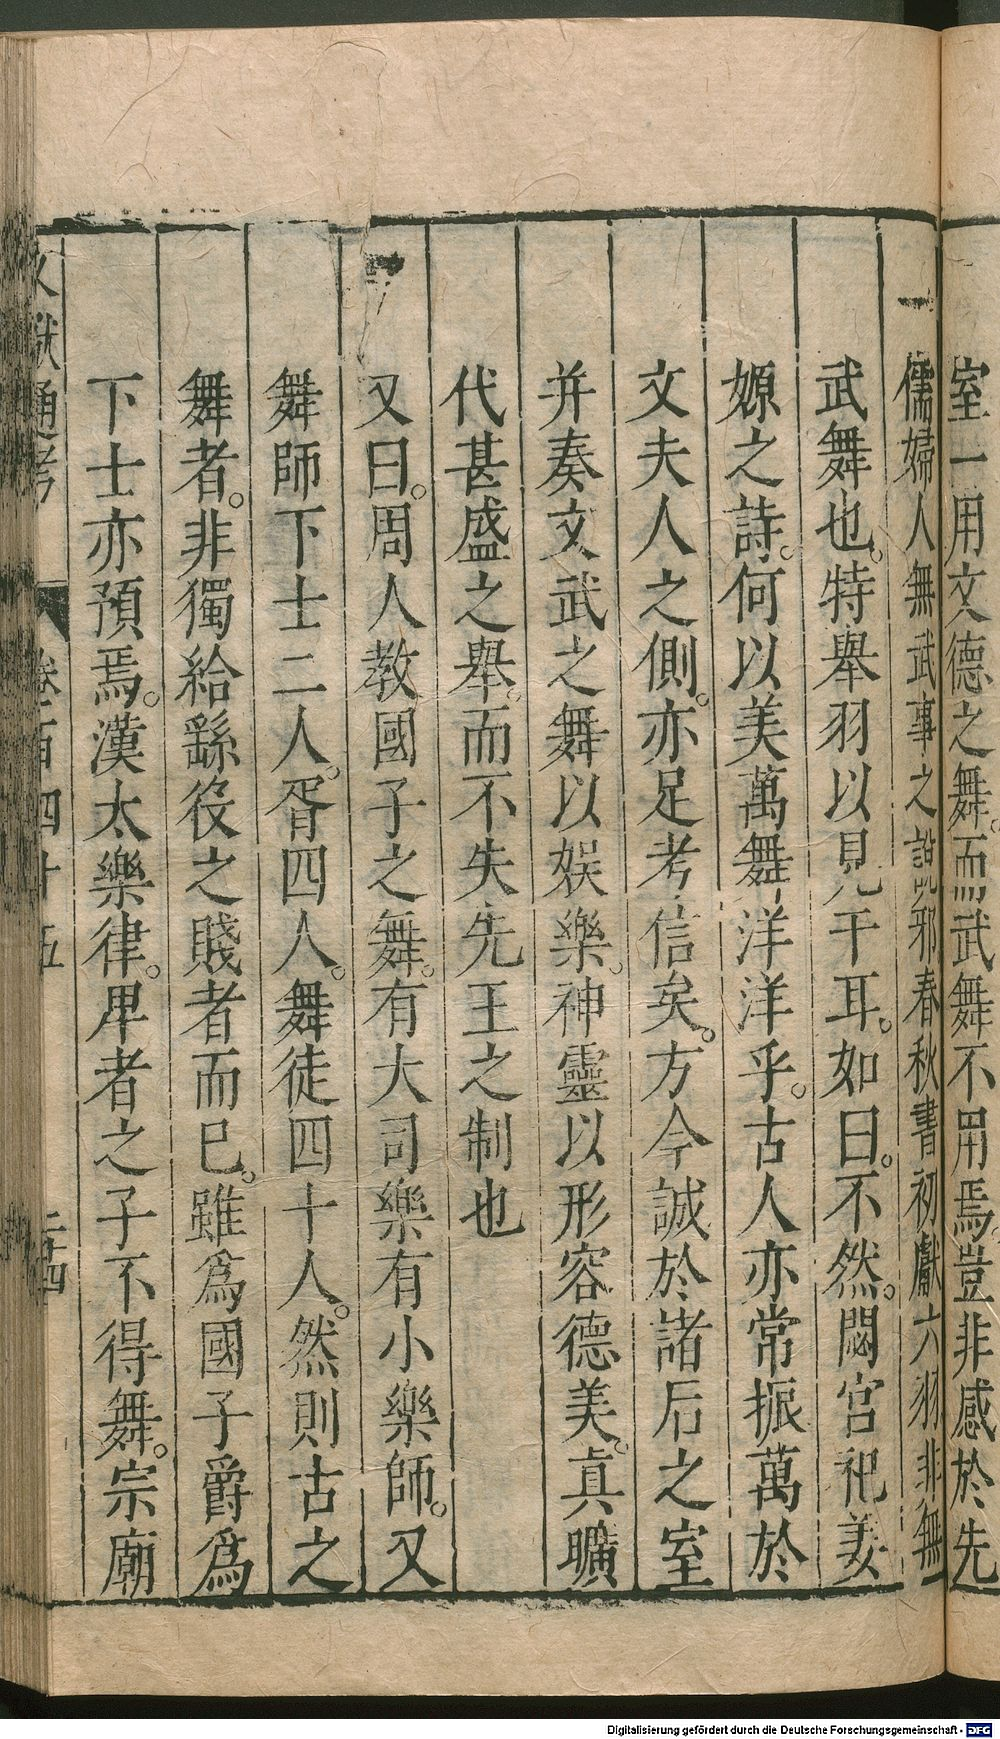 室一用文德之舞。而武舞不用焉。豈非感於先
儒婦人無武事之說邪春秋書初獻六羽非無
武舞也。特舉羽以見干耳。如曰。不然。閟宮祀姜
嫄之詩。何以美萬舞洋洋乎。古人亦常振萬於
文夫人之側。亦足考信矣。方今誠於諸后之室
并奏文武之舞以娛樂。神靈以形容德美。真曠
代甚盛之舉。而不失先王之制也
又曰。周人教國子之舞。有大司樂有小樂師。又
舞師下士二人。胥四人。舞徒四十人。然則古之
舞者。非獨給繇役之賤者而已。雖為國子爵為
下士亦預焉。漢太樂律。卑者之子不得舞。宗廟
文獻通考 卷百四十五 二十四
Digitalisierung gefördert durch die Deutsche Forschungsgemeinschaft - DFG